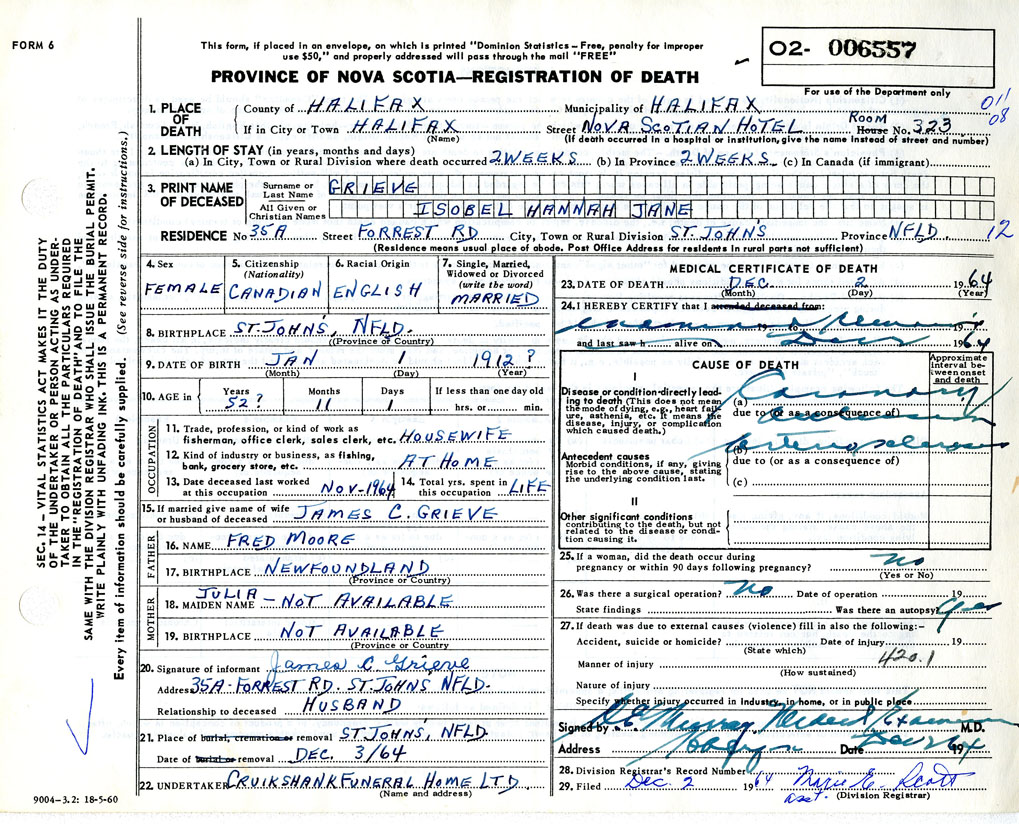 FORM 6
This form, if placed in an envelope, on which is printed "Dominion Statistics – Free, penalty for improper
use $50," and properly addressed will pass through the mail "FREE"
PROVINCE OF NOVA SCOTIA—REGISTRATION OF DEATH
O2- 006557
For use of the Department only
011
08
SEC. 14 – VITAL STATISTICS ACT MAKES IT THE DUTY
OF THE UNDERTAKER OR PERSON ACTING AS UNDER-
TAKER TO OBTAIN ALL THE PARTICULARS REQUIRED
IN THE "REGISTRATION OF DEATH" AND TO FILE THE
SAME WITH THE DIVISION REGISTRAR WHO SHALL ISSUE THE BURIAL PERMIT.
WRITE PLAINLY WITH UNFADING INK. THIS IS A PERMANENT RECORD.
Every item of information should be carefully supplied. (See reverse side for instructions.)
1. PLACE OF DEATH
County of HALIFAX Municipality of HALIFAX
If in City or Town HALIFAX Street NOVA SCOTIAN HOTEL ROOM House No. 323
(Name) (If death occurred in a hospital or institution, give the name instead of street and number)
2. LENGTH OF STAY (in years, months and days)
(a) In City, Town or Rural Division where death occurred 2 WEEKS (b) In Province 2 WEEKS (c) In Canada (if immigrant)
3. PRINT NAME OF DECEASED
Surname or Last Name GRIEVE
All Given or Christian Names ISOBEL HANNAH JANE
RESIDENCE No 35A Street FORREST RD City, Town or Rural Division ST. JOHN'S Province NFLD. 12
(Residence means usual place of abode. Post Office Address for residents in rural parts not sufficient)
4. Sex FEMALE
5. Citizenship (Nationality) CANADIAN
6. Racial Origin ENGLISH
7. Single, Married, Widowed or Divorced (write the word) MARRIED
8. BIRTHPLACE ST. JOHN'S, NFLD.
(Province or Country)
9. DATE OF BIRTH JAN 1 1912 ?
(Month) (Day) (Year)
10. AGE in Years 52? Months 11 Days 1 If less than one day old hrs. or min.
OCCUPATION
11. Trade, profession, or kind of work as
fisherman, office clerk, sales clerk, etc. HOUSEWIFE
12. Kind of industry or business, as fishing,
bank, grocery store, etc. AT HOME
13. Date deceased last worked at this occupation NOV-1964 14. Total yrs. spent in this occupation LIFE
15. If married give name of wife or husband of deceased JAMES C. GRIEVE
FATHER
16. NAME FRED MOORE
17. BIRTHPLACE NEWFOUNDLAND
(Province or Country)
MOTHER
18. MAIDEN NAME JULIA - NOT AVAILABLE
19. BIRTHPLACE NOT AVAILABLE
(Province or Country)
20. Signature of informant James C Grieve
Address 35A-FORREST RD. ST. JOHNS' NFLD.
Relationship to deceased HUSBAND
21. Place of burial, cremation or removal ST JOHNS, NFLD.
Date of burial or removal DEC. 3/64
22. UNDERTAKER CRUIKSHANK FUNERAL HOME LTD.
(Name and address)
9004-3.2: 18-5-60
MEDICAL CERTIFICATE OF DEATH
23. DATE OF DEATH DEC. 2 1964
(Month) (Day) (Year)
24. I HEREBY CERTIFY that I attended deceased from:
examined remains
19 to 19
and last saw h alive on Dec 2 1964
CAUSE OF DEATH
Approximate interval between onset and death
I
Disease or condition directly leading to death (This does not mean the mode of dying, e.g., heart failure, asthenia, etc. It means the disease, injury, or complication which caused death.)
(a) Coronary
due to (or as a consequence of)
occlusion
(b) arteriosclerosis
Antecedent causes
Morbid conditions, if any, giving rise to the above cause, stating the underlying condition last.
due to (or as a consequence of)
(c)
II
Other significant conditions
contributing to the death, but not related to the disease or condition causing it.
25. If a woman, did the death occur during
pregnancy or within 90 days following pregnancy? no
(Yes or No)
26. Was there a surgical operation? No Date of operation 19
State findings Was there an autopsy? Yes
27. If death was due to external causes (violence) fill in also the following:-
Accident, suicide or homicide? Date of injury 19
(State which)
Manner of injury 420.1
(How sustained)
Nature of injury
Specify whether injury occurred in industry, in home, or in public place
Signed by Murray Medical Examiner M.D.
Address Date Dec 2 1964
28. Division Registrar's Record Number
29. Filed Dec. 2 1964 Marie E. Scott
asst. (Division Registrar)